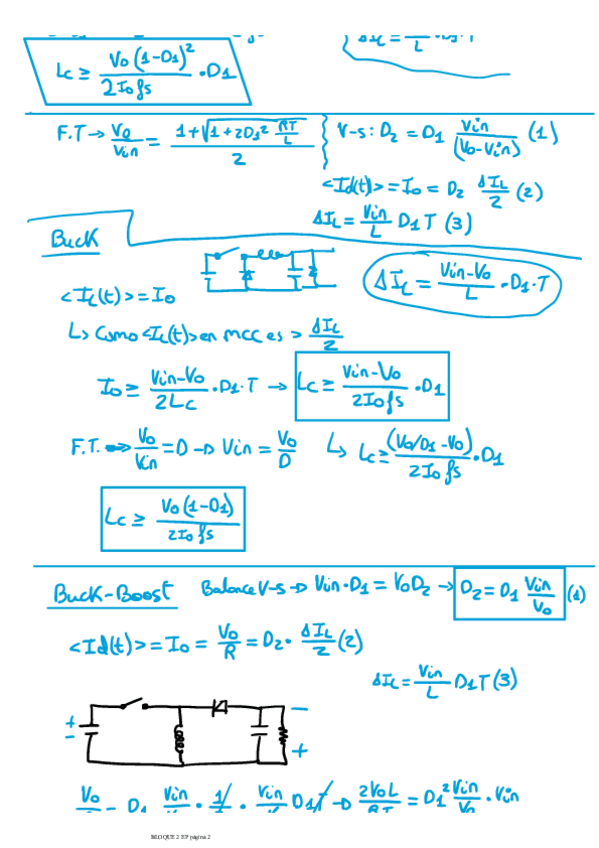 Lc ≥ Vo(1-D1)²/2Io fs · D1
F.T → Vo/Vin = (1+√(1+2D1² RT/L))/2 V-s: D2 = D1 Vin/(Vo-Vin) (1)
<Id(t)> = Io = D2 ΔIL/2 (2)
ΔIL = Vin/L D1T (3)
Buck
ΔIL = (Vin-Vo)/L · D1·T
<IL(t)> = Io
↳ Como <IL(t)> en mcc es > ΔIL/2
Io ≥ (Vin-Vo)/2Lc · D1·T → Lc ≥ (Vin-Vo)/2Io fs · D1
F.T. → Vo/Vin = D → Vin = Vo/D ↳ Lc ≥ (Vo/D1 - Vo)/2Io fs · D1
Lc ≥ Vo(1-D1)/2Io fs
Buck-Boost Balance V-s → Vin·D1 = VoD2 → D2 = D1 Vin/Vo (1)
<Id(t)> = Io = Vo/R = D2 · ΔIL/2 (2)
ΔIL = Vin/L D1T (3)
+ -
- +
BLOQUE 2 EP página 2